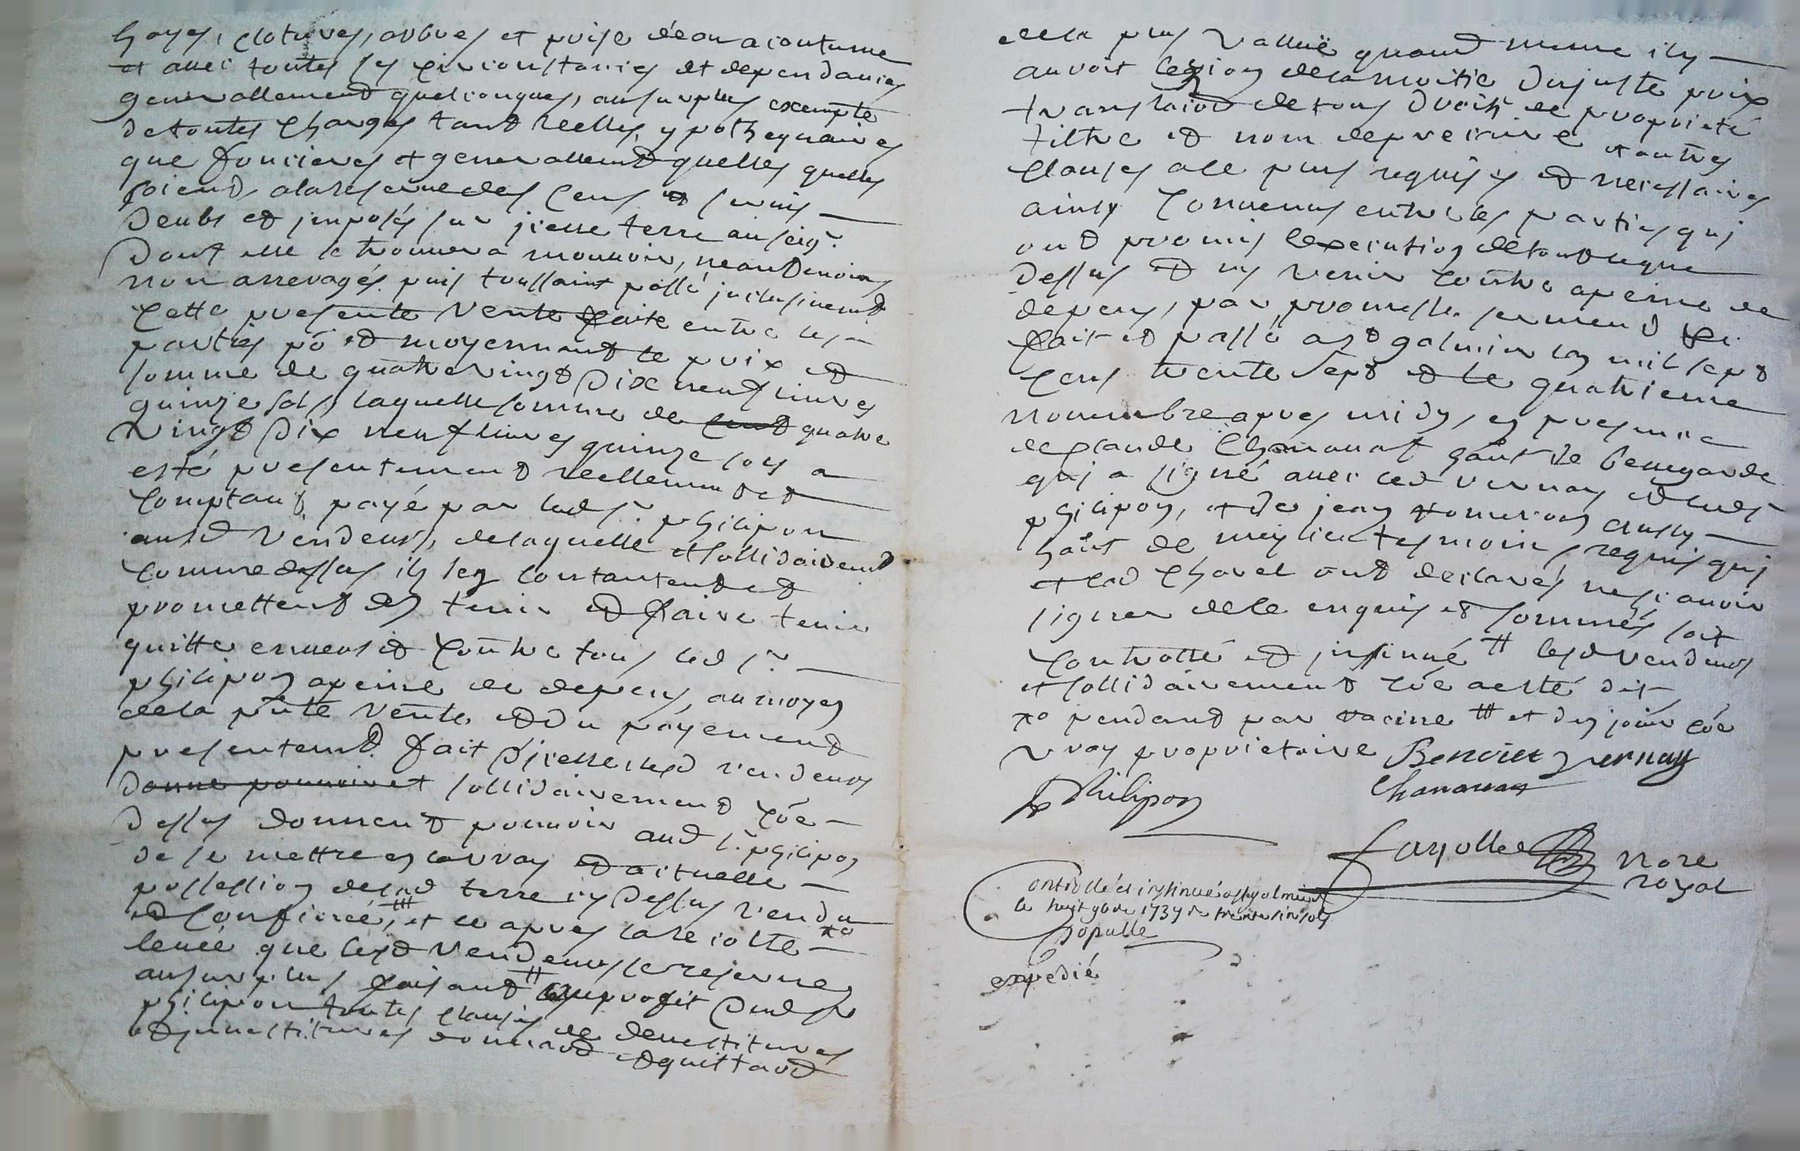 hayes, clotures, aubues et prise deau acoutume
et avec toutes ses circonstances et dependances
generallement quelconques, au surplus exempte
de toutes charges tant reelles, ypothequaires
que foncieres et generallement quelles quelles
soient, a la reserve des cens et servis
deubs et jmposés sur jcelle terre au seigr.
dont elle se trouvera mouvoir, neantmoins
non arreragés puis toussaint passé jnclusivement
cette presente vente faite entre les
parties po et moyennant le prix et
somme de quatre vingt dix neuf livres
quinze sols, laquelle somme de cent quatre
vingt dix neuf livres quinze sols a
esté presentement reellement et
comptant payé par led sr. philipon
ausd vendeurs, de laquelle et sollidairemt
comme dessus ils sen contantent et
promettent den tenir et faire tenir
quitte envers et contre tous led sr.
philipon a peine de depens, au moyen
de la pnte vente et du payement
presentemt. fait djcelle lesd vendeurs
donne pouvoir et sollidairement coe
dessus donnent pouvoir aud sr. philipon
de se mettre en la vray et actuelle
possession de lad terre cy dessus vendu
et confinée, ttt et ce apres la recolte xo
levée que lesd vendeurs se reservent
au surplus faisant tt au profit dud sr
philipon toutes clauses de devestitures
et jnvestitures donnant et quittant
de la plus vallue quand meme il y
auroit lezion de la moitie du juste prix
translaion de tous droits de proprieté
tiltre et nom de precaire et autres
clauses a ce plus requises et necessaires
ainsy convenus entre les parties qui
ont promis lexecution de tout ce que
dessus et ny venir contre a peine de
depens, par promesse serment &c.
fait et passé a st galmier lan mil sept
cens trente sept et le quatrieme
novembre apres midy, en presence
de claude Chanavat hant de bellegarde
qui a signé avec led vernay et led sr
philipon, et de jean
hant de meylieu tesmoins requis qui
et lad Chovet ont declarés ne scavoir
signer de ce enquis et sommés soit
controllé et jnsinué tt lesd vendeurs
et sollidairement coe a esté dit
xo pendant par racine ttt et den jouir coe
vray proprietaire Benoist vernay
Philipon Chanavat
fayolle nore
royal
Controllé et insinué a st galmier
le huit 9bre 1737 r trente cinq sols
populle
expedié